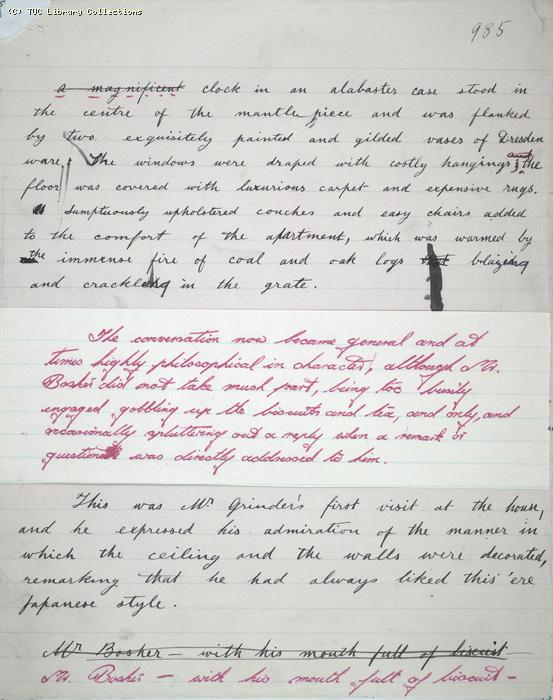 (C) TUC Library Collections
985
a magnificent clock in an alabaster case stood in
the centre of the mantle piece and was flanked
by two exquisitely painted and gilded vases of Dresden
ware. The windows were draped with costly hangings, and the
floor was covered with luxurious carpet and expensive rugs.
Sumptuously upholstered couches and easy chairs added
to the comfort of the apartment, which was warmed by
the immense fire of coal and oak logs that blazing
and crackling in the grate.
The conversation now became general and at
times highly philosophical in character, although Mr.
Bosher did not take much part, being too busily
engaged gobbling up the biscuits and tea, and only, and
occasionally spluttering out a reply when a remark or
question was directly addressed to him.
This was Mr Grinder's first visit at the house,
and he expressed his admiration of the manner in
which the ceiling and the walls were decorated,
remarking that he had always liked this 'ere
Japanese style.
Mr Bosher - with his mouth full of biscuit
Mr. Bosher - with his mouth full of biscuit -